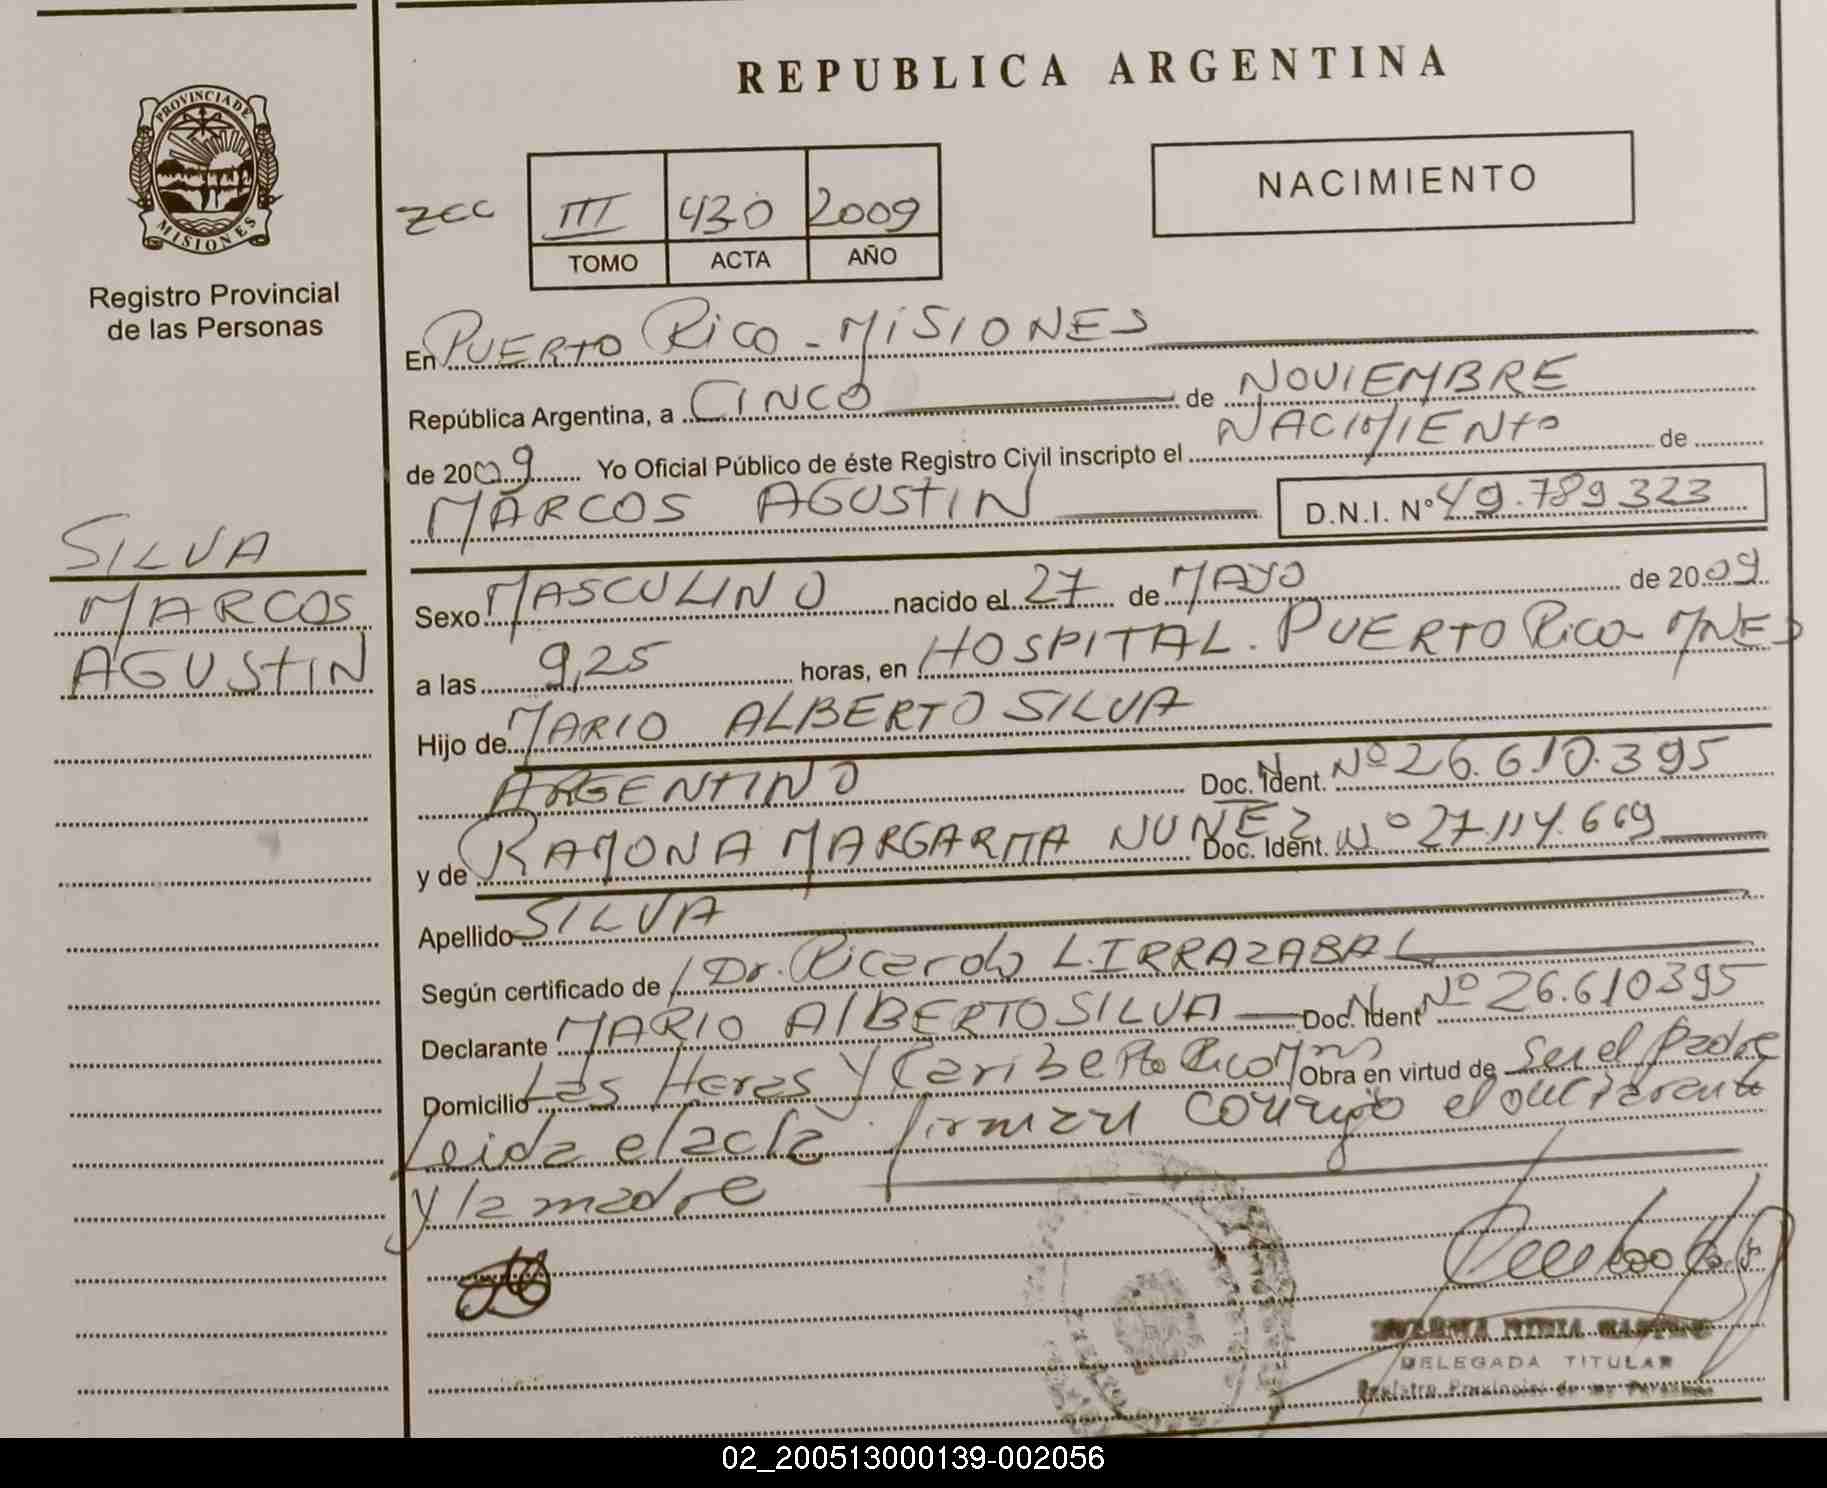 REPUBLICA ARGENTINA
PROVINCIA DE
MISIONES
Registro Provincial
de las Personas
NACIMIENTO
zcc
III 430 2009
TOMO ACTA AÑO
En PUERTO RICO - MISIONES
República Argentina, a CINCO de NOVIEMBRE
de 2009 Yo Oficial Público de éste Registro Civil inscripto el NACIMIENTO de
MARCOS AGUSTIN D.N.I. N° 49.789323
SILVA
MARCOS
AGUSTIN
Sexo MASCULINO nacido el 27 de MAYO de 2009
a las 9,25 horas, en HOSPITAL. PUERTO RICO - MNES
Hijo de MARIO ALBERTO SILVA
ARGENTINO Doc. N. Ident. Nº 26.610.395
y de RAMONA MARGARITA NUNEZ Doc. Ident. Nº 27.114.669
Apellido SILVA
Según certificado de Dr. Ricardo L. IRRAZABAL
Declarante MARIO ALBERTO SILVA Doc. N. Ident Nº 26.610395
Domicilio Las Heras y Caribe Pto Rico Mns Obra en virtud de ser el padre
Leida el acta firman conmigo el declarante
y la madre
DELEGADA TITULAR
Registro Provincial de las Personas
02_200513000139-002056